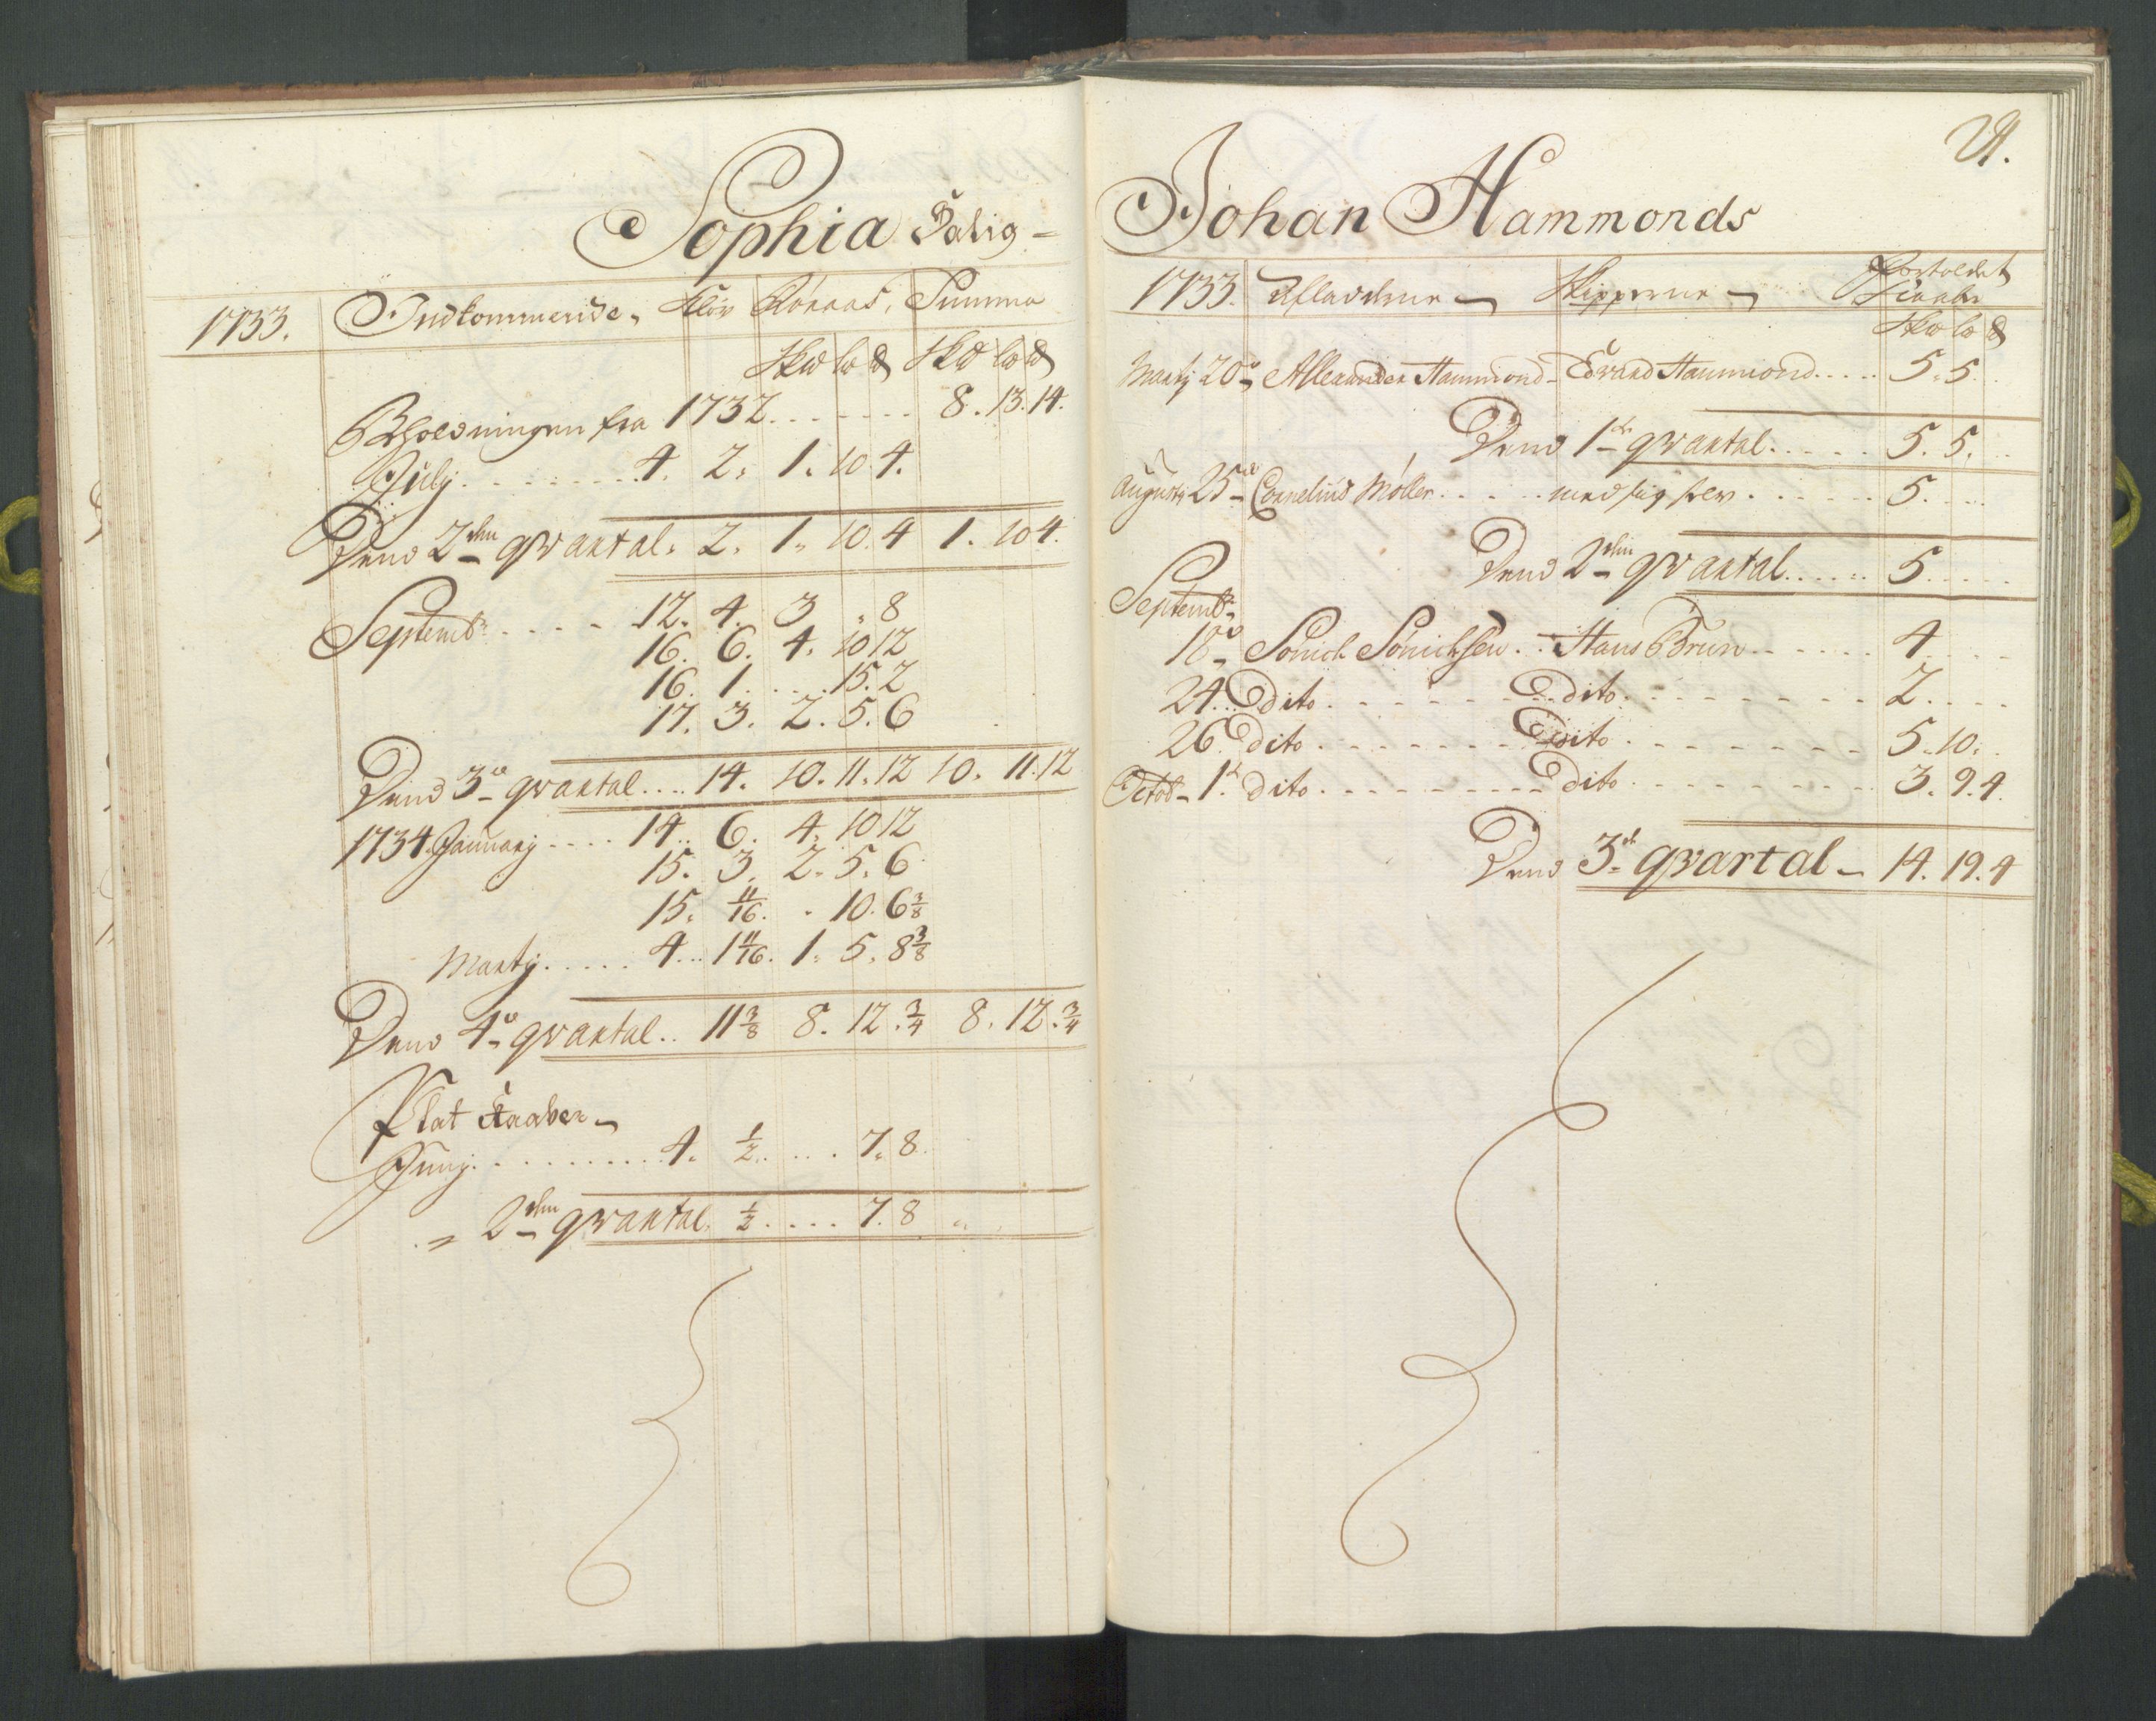 Sophia Salig -
1733. Indkommende, Støv Röraas, Summa
Sk℔ L℔ ℔ Sk℔ L℔ ℔
Beholdningen fra 1732 . . . . . . 8. 13. 14.
July . . . . . . . . 4. 2. 1. 10 4.
Dend 2den qvartal. 2. 1. 10. 4 1. 10 4.
Septembr . . . . 12. 4. 3 . 8
16. 6. 4. 10 12
16. 1 . . . . 15. 2
17. 3. 2. 5. 6
Dend 3de qvartal . . . . 14. 10. 11. 12 10. 11. 12
1734. January . . . . 14. 6. 4. 10 12
15. 3. 2. 5. 6
15. 11/16. . 10. 6 3/8
Martij . . . . . 4. . 1 11/16. 1. 5. 8 3/8
Dend 4de qvartal . . 11 3/8 8. 12. 3/4 8. 12. 3/4
Plat Kaaber
Junij . . . . . . . . . 4. 1/2 . . . . 7. 8.
2den qvartal. 1/2 . . . . 7. 8
21.
Johan Hammonds
1733. Skipperne Fortoldet
Kaaber
Sk℔ L℔ ℔
Martij 20de Allexander Hammond - Edvard Hammond . . . . . 5. 5.
Dend 1ste qvartal . . . . . 5. 5.
Augusty 25de Cornelius Møller . . . . . med sig selv . . . . . . 5 . . . .
Dend 2den qvartal . . . . . . 5 . . . . .
Septembr
18de Sönich Sönichsen . . Hans Brun . . . . . . 4 . . . .
24. dito . . . . . . . . dito . . . . . . . . 2 . . . .
26. dito . . . . . . . dito . . . . . . . . 5. 10.
Octob - 1ste dito . . . . . . . . . dito . . . . . . . . . 3. 9. 4.
Dend 3de qvartal - 14. 19. 4